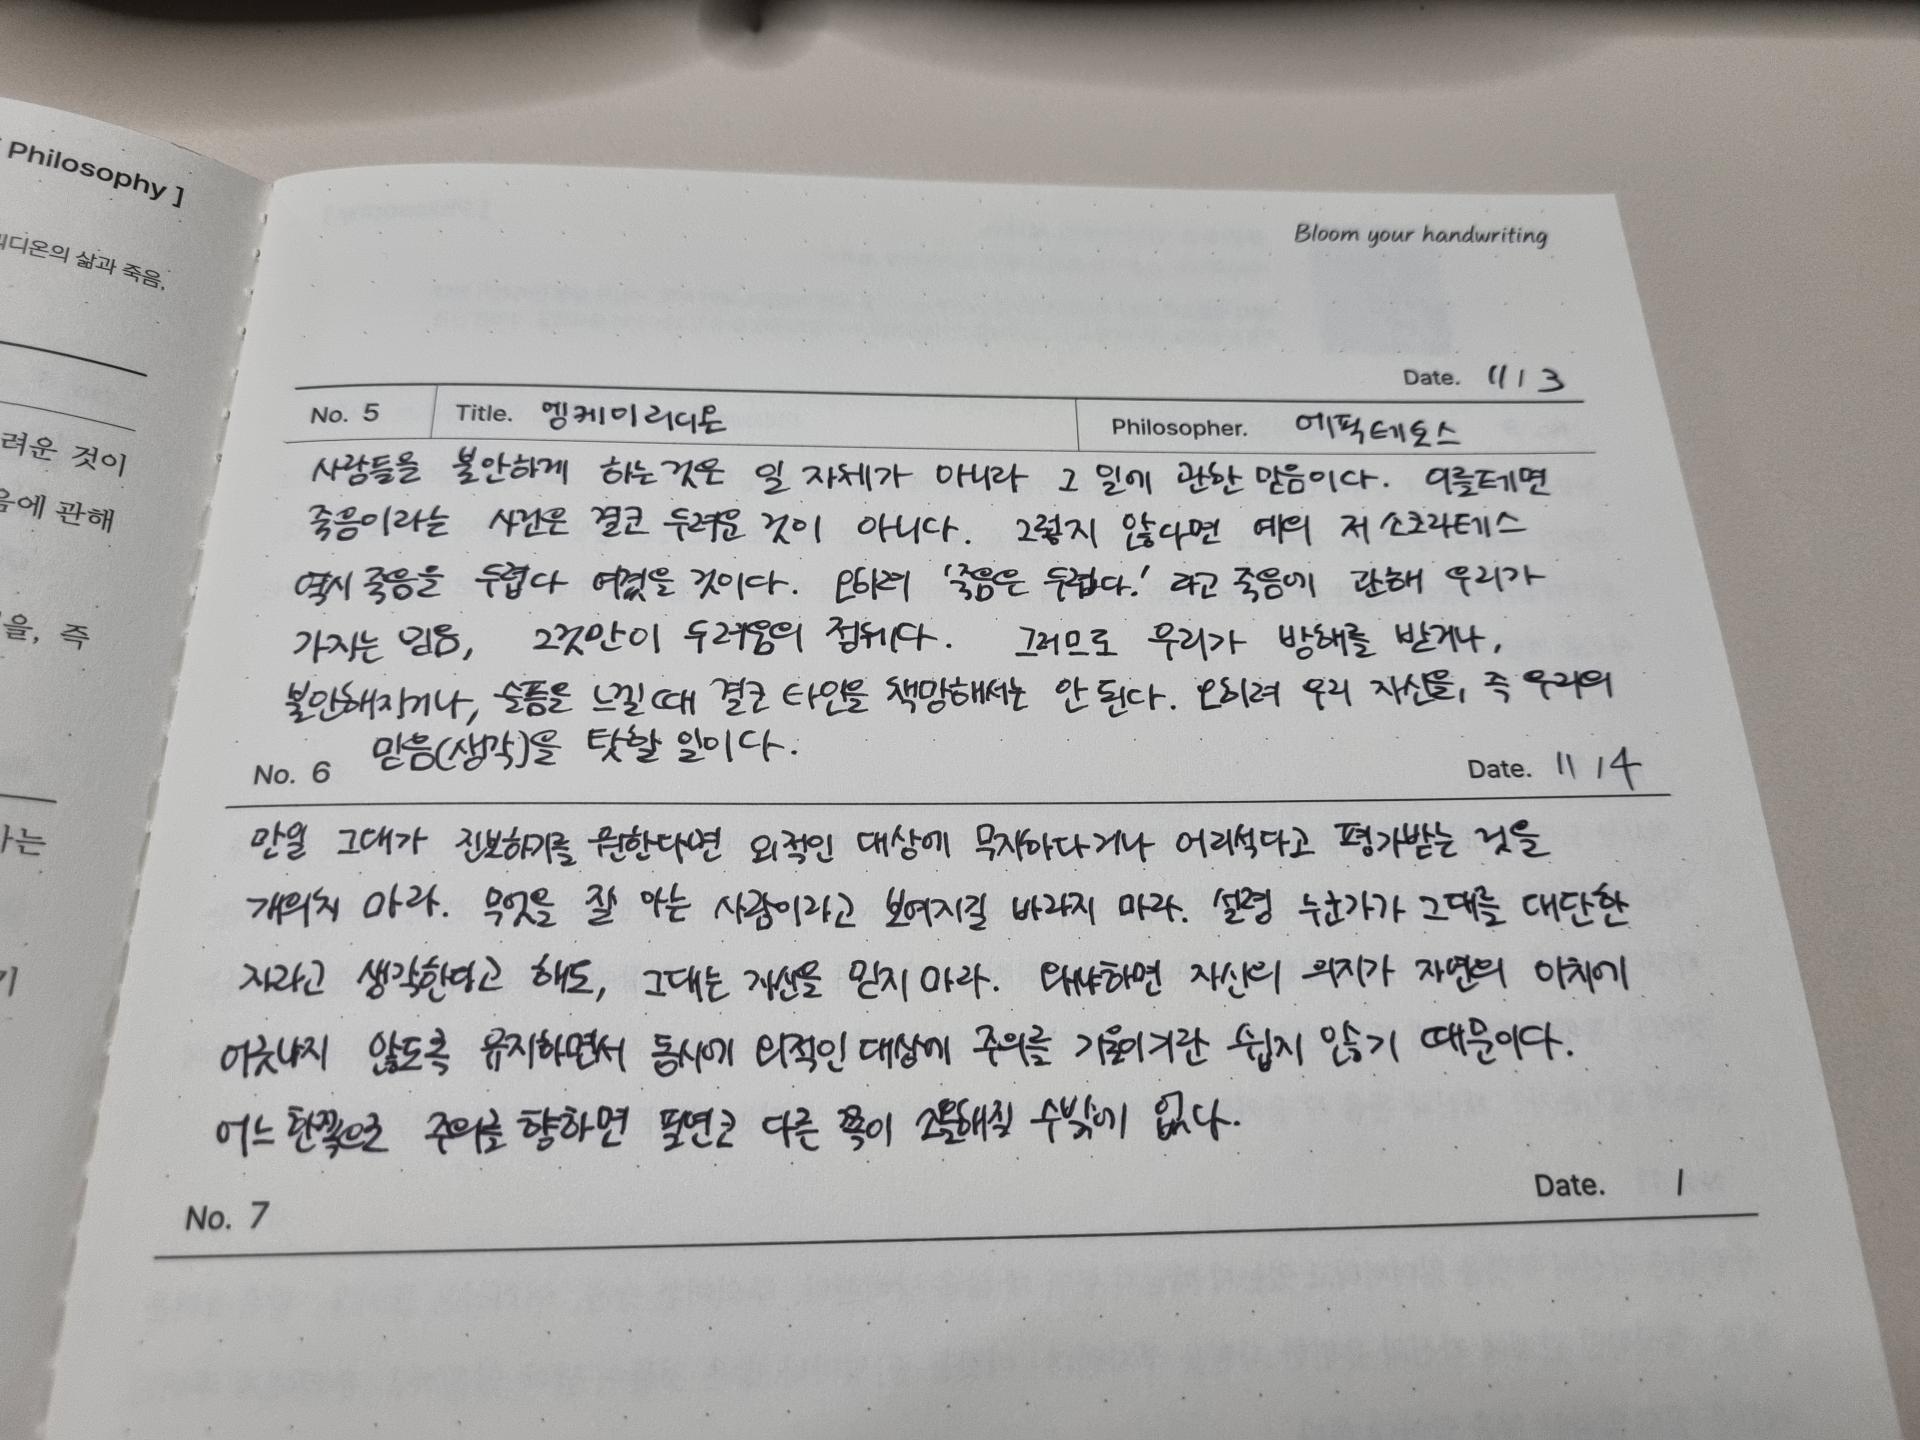 Philosophy ]
디온의 삶과 죽음,
려운 것이
음에 관해
을, 즉
기
Bloom your handwriting
Date. 11 13
No. 5 Title. 엥케이리디온 Philosopher. 에픽테토스
사람들을 불안하게 하는 것은 일 자체가 아니라 그 일에 관한 믿음이다. 이를테면
죽음이라는 사건은 결코 두려운 것이 아니다. 그렇지 않다면 예의 저 소크라테스
역시 죽음을 두렵다 여겼을 것이다. 오히려 '죽음은 두렵다.' 라고 죽음에 관해 우리가
가지는 믿음, 그것만이 두려움의 정체다. 그러므로 우리가 방해를 받거나,
불안해지거나, 슬픔을 느낄 때 결코 타인을 책망해서는 안 된다. 오히려 우리 자신을, 즉 우리의
믿음(생각)을 탓할 일이다.
No. 6 Date. 11 14
만일 그대가 진보하기를 원한다면 외적인 대상에 무지하다거나 어리석다고 평가받는 것을
개의치 마라. 무엇을 잘 아는 사람이라고 보여지길 바라지 마라. 설령 누군가가 그대를 대단한
자라고 생각한다고 해도, 그대는 자신을 믿지 마라. 왜냐하면 자신의 의지가 자연의 이치에
어긋나지 않도록 유지하면서 동시에 외적인 대상에 주의를 기울이기란 쉽지 않기 때문이다.
어느 한쪽으로 주의를 향하면 필연코 다른 쪽이 소홀해질 수밖에 없다.
No. 7 Date. 1